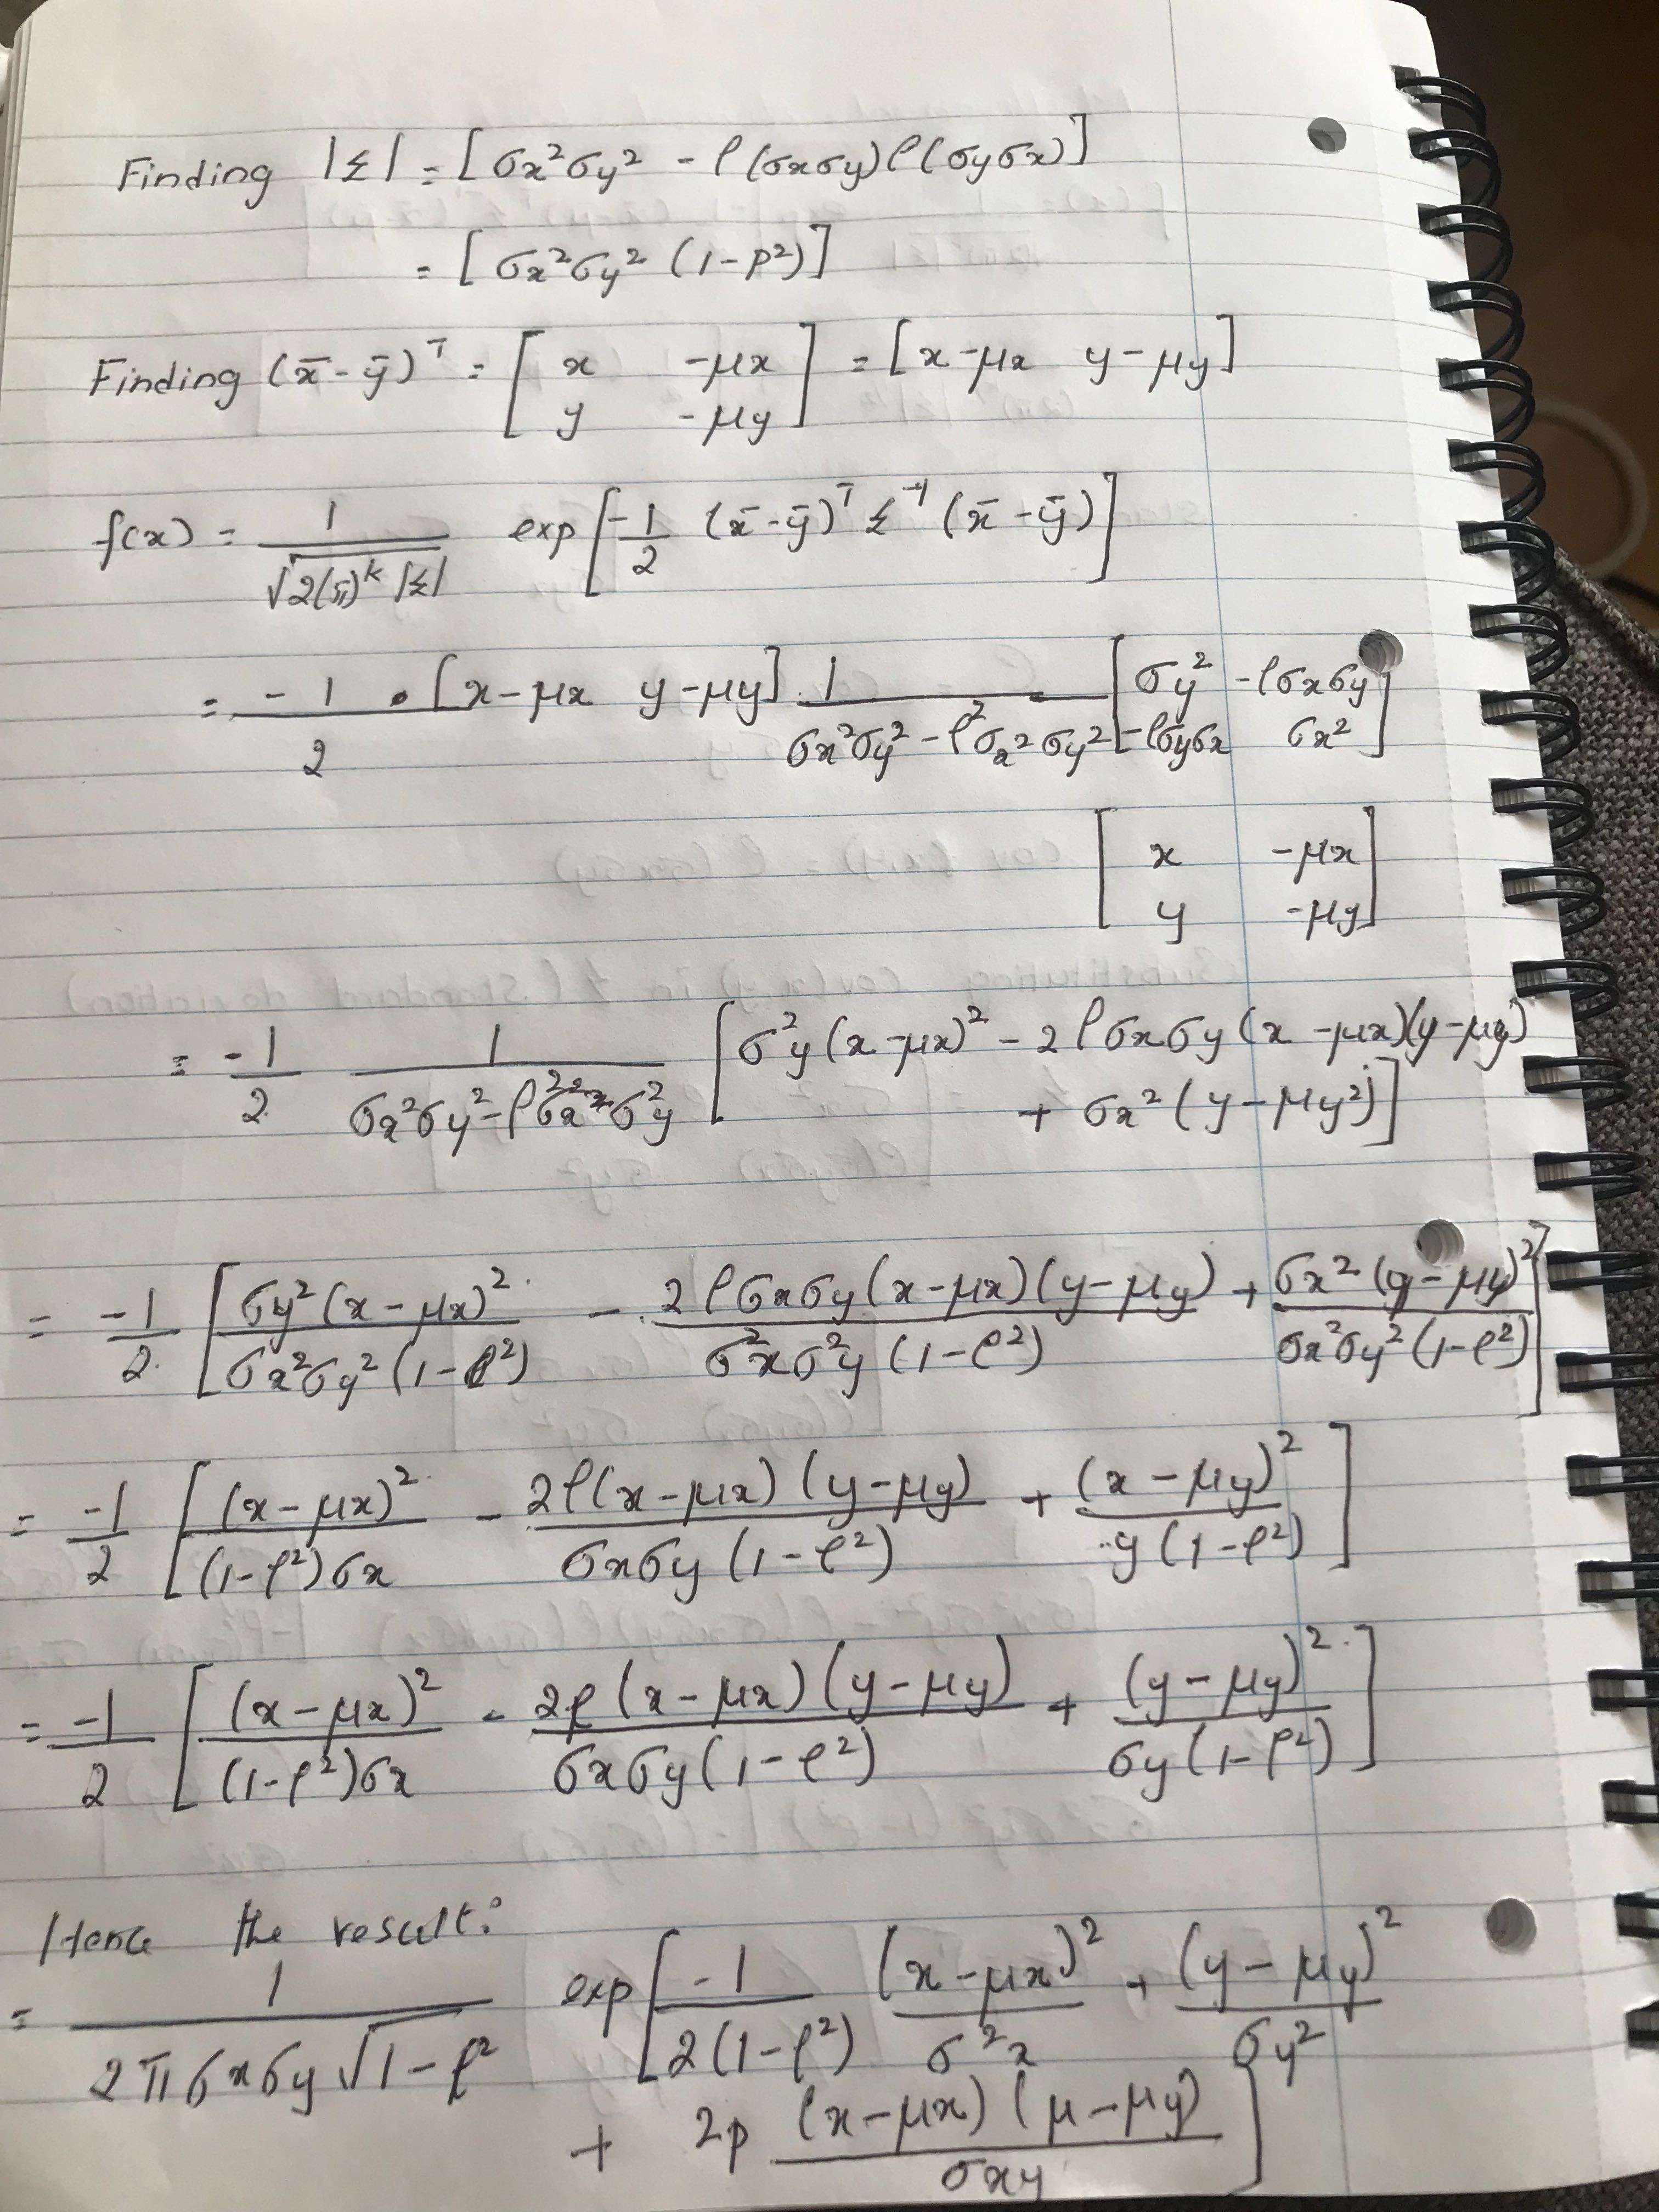 Finding |Σ| = [σx²σy² - ρ(σxσy)ρ(σyσx)]
= [σx²σy² (1-ρ²)]
Finding (x̄ - ȳ)ᵀ = [x -μx
y -μy] = [x-μx y-μy]
f(x) = 1/√2(π)ᵏ|Σ| exp[-1/2 (x̄-ȳ)ᵀ Σ⁻¹ (x̄-ȳ)]
= -1/2 • [x-μx y-μy] . 1/σx²σy² - ρ²σx²σy² [σy² -ρσxσy
-ρσyσx σx²]
[x -μx
y -μy]
= -1/2 1/σx²σy² - ρ²σx²σ²y [σ²y(x-μx)² - 2ρσxσy(x-μx)(y-μy)
+ σx²(y-μy²)]
= -1/2 [σy²(x-μx)²/σx²σy²(1-ρ²) - 2ρσxσy(x-μx)(y-μy)/σ²xσ²y(1-ρ²) + σx²(y-μy)²/σx²σy²(1-ρ²)]
= -1/2 [(x-μx)²/(1-ρ²)σx - 2ρ(x-μx)(y-μy)/σxσy(1-ρ²) + (x-μy)²/y(1-ρ²)]
= -1/2 [(x-μx)²/(1-ρ²)σx - 2ρ(x-μx)(y-μy)/σxσy(1-ρ²) + (y-μy)²/σy(1-ρ²)]
Hence the result:
= 1/2πσxσy√1-ρ² exp[-1/2(1-ρ²) (x-μx)²/σ²x + (y-μy)²/σy²
+ 2p (x-μx)(μ-μy)/σxy]